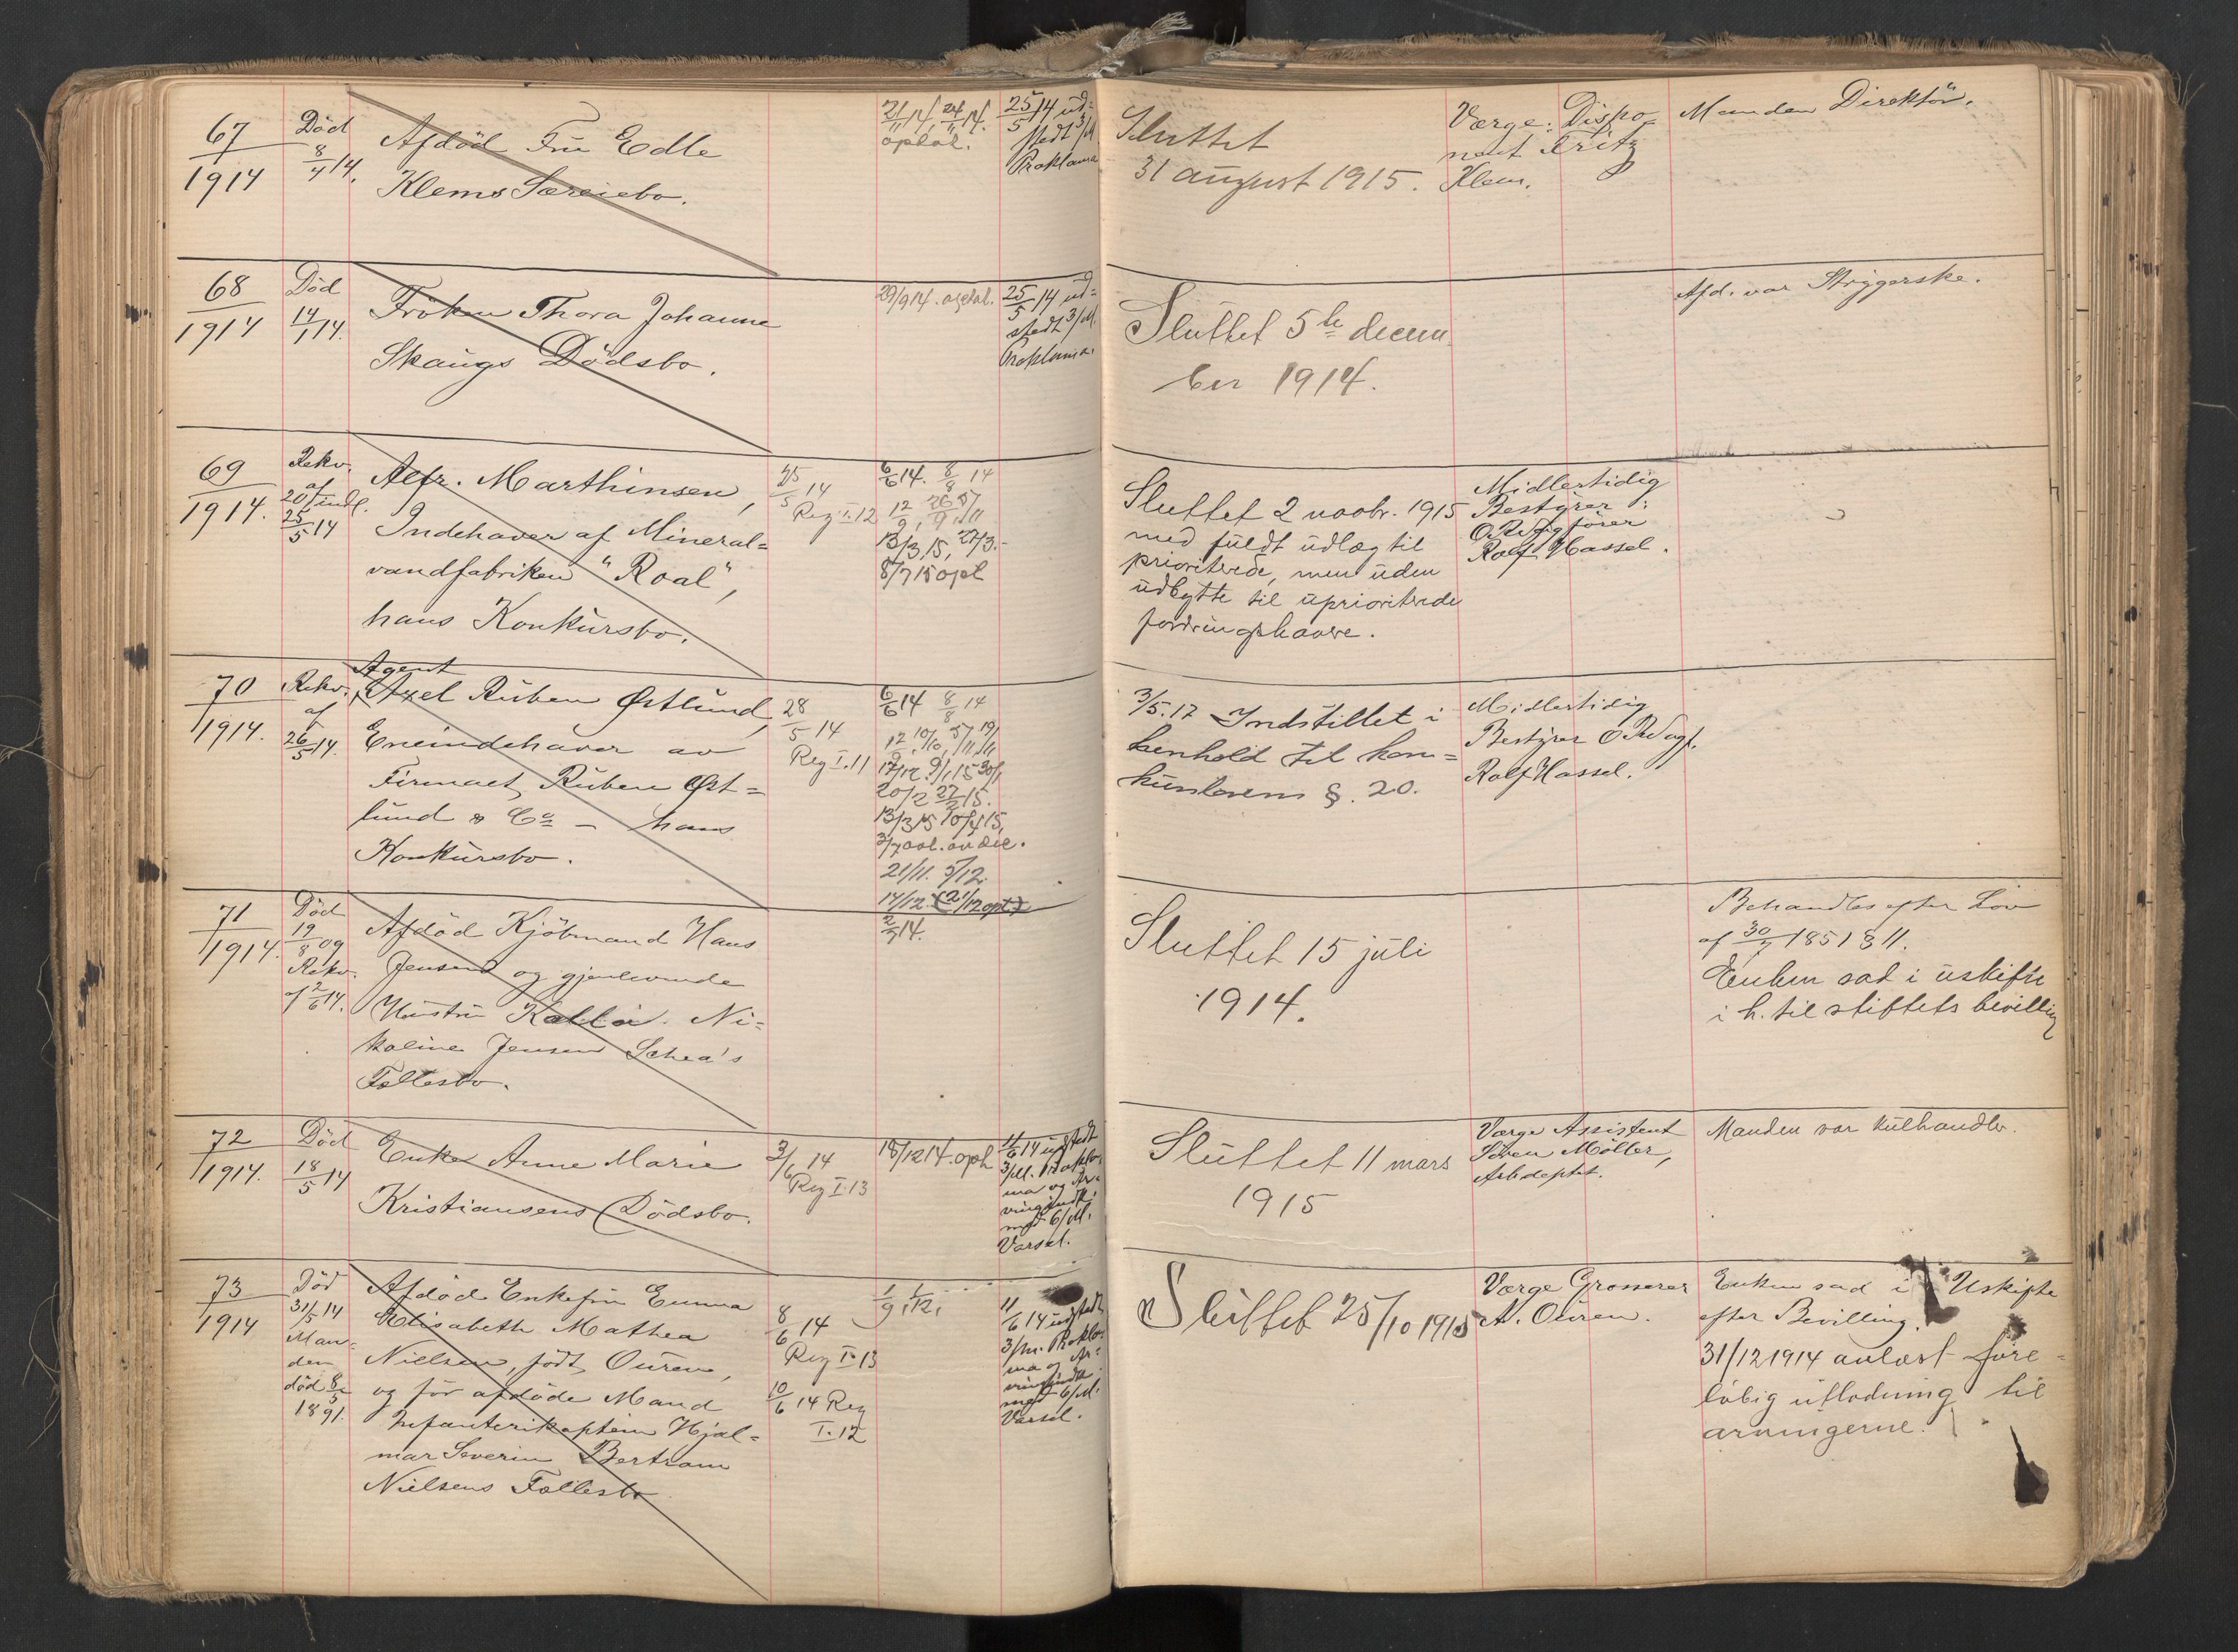 67
1914
Död
8/4 14.
Afdöd Frü Edle
Klems Særeiebo.
21/11 14, 24/11 14.
optal.
25/5 14 üd=
stedt 3/M
Proklama
Sluttet
31 aügust 1915.
Værge: Dispo=
nent Fritz
Klem.
Manden Direktör.
68
1914
Död
14/1 14.
Fröken Thora Johanne
Skaugs Dödsbo.
29/9 14. optal.
25/5 14 üd=
stedt 3/M.
Proklama.
Sluttet 5te decem
ber 1914.
Afd. var Strygerske.
69
1914.
Rekv.
af
20/5 indl.
25/5 14
Alfr. Marthinsen,
Indehaver af Mineral=
vandfabriken "Roal",
hans Konkürsbo.
25/5 14
Reg I.12
6/6 14. 8/8 14
12/9, 26/9, 5/11
13/3 15, 27/3.
8/7 15 opl
Sluttet 2 novbr. 1915
med füldt üdlæg til
prioriterede, men üden
üdbytte til üprioriterede
fordringshavere.
Midlertidig
Bestyrer:
ORSagförer
Rolf Hassel.
70
1914.
Rekv.
af
26/5 14.
Agent
Axel Rüben Østlünd,
Eneindehaver av
Firmaet Rüben Øst=
lünd & Co – hans
Konkürsbo.
28/5 14
Reg I.11
6/6 14 8/8 14
12/9, 10/10, 5/11, 19/11
17/12 9/1 15 30/1
20/2 27/2 15.
13/3 15 10/4 15,
21/11. 5/12.
14/12. (21/12 opt.)
3/5.17 Indstillet i
henhold til kon=
kürslovens §. 20.
Midlertidig
Bestyrer ORSagf.
Rolf Hassel.
71
1914.
Död
19/8 09
Rekv.
af 2/6 14.
Afdöd Kjöbmand Hans
Jensen og gjenlevende
Hüstrü Ni=
koline Jensen Schea's
Fællesbo.
2/7 14.
Sluttet 15 jüli
1914.
Behandles efter Lov
af 30/7 1851 § 11.
Enken sad i üskifte
i h. til stiftets bevilling
72
1914.
Död
18/5 14
Enke Anne Marie
Kristiansens Dödsbo.
3/6 14
Reg I.13
18/12 14. opt.
11/6 14 üdstedt
3/M. Prokla-
ma og Ar-
vingindk.
med 6/M.
Varsel.
Slüttet 11 mars
1915
Værge Assistent
Sören Möller,
Arb.deptet.
Manden var külhandler.
73
1914
Död
31/5 14
Man-
den
död 8/5
1891.
Afdöd Enkefrü Emma
Elisabeth Mathea
Nielsen, född Oüren,
og för afdöde Mand
Infanterikaptein Hjal=
mar Severin Bertram
Nielsens Fællesbo.
8/6 14
Reg I.13
10/6 14 Reg
I.12
1/9, 1/12,
11/6 14 üdstedt
3/m. Prokla-
ma og Ar=
vingindk.
med 6/M.
Varsel.
Slüttet 25/10 1915
Værge Grosserer
A. Oüren.
Enken sad i Uskifte
efter Bevilling.
31/12 1914 avlæst fore=
löbig ütlodning til
arvingerne.